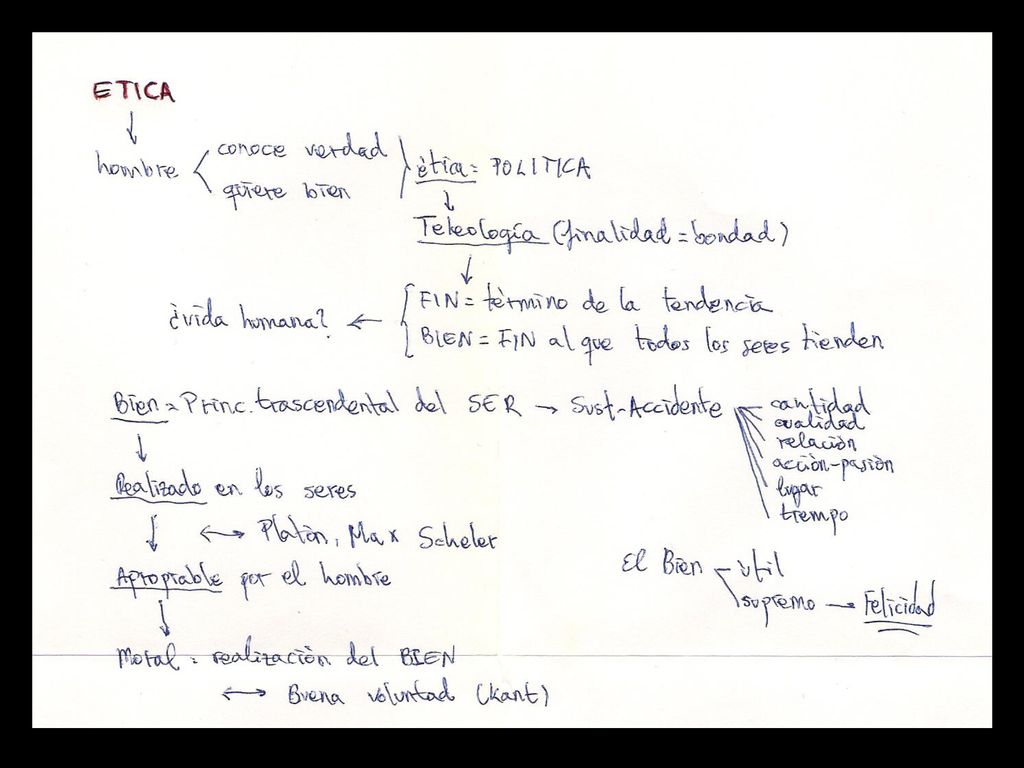 ETICA
↓
hombre < conoce verdad
quiere bien
ética = POLITICA
↓
Teleología (finalidad = bondad)
↓
FIN = término de la tendencia
¿vida humana? ←
BIEN = FIN al que todos los seres tienden
Bien = Princ. trascendental del SER → Sust-Accidente
cantidad
cualidad
relación
acción-pasión
lugar
tiempo
↓
Realizado en los seres
↓ ↔ Platón, Max Scheler
Apropiable por el hombre
↓
El Bien - útil
supremo → Felicidad
Moral = realización del BIEN
↔ Buena voluntad (Kant)